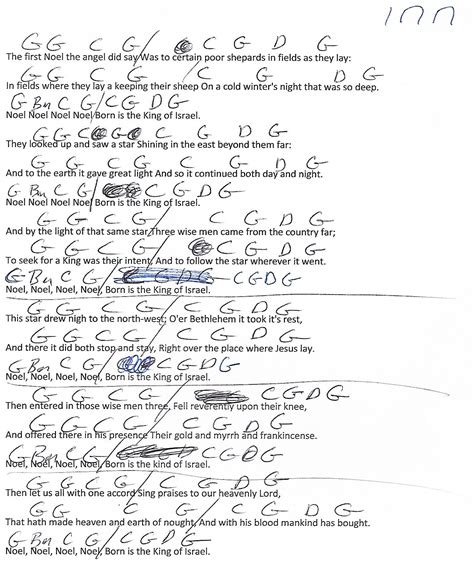 G G C G / C G D G
The first Noel the angel did say Was to certain poor shepards in fields as they lay:
G G C G / C G D G
In fields where they lay a keeping their sheep On a cold winter's night that was so deep.
G Bm C G / C G D G
Noel Noel Noel Noel Born is the King of Israel.
G G C G C G D G
They looked up and saw a star Shining in the east beyond them far:
G G C G C G D G
And to the earth it gave great light And so it continued both day and night.
G Bm C G / C G D G
Noel Noel Noel Noel Born is the King of Israel.
G G C G / C G D G
And by the light of that same star Three wise men came from the country far;
G G C G / C G D G
To seek for a King was their intent, And to follow the star wherever it went.
G Bm C G / C G D G
Noel, Noel, Noel, Noel, Born is the King of Israel.
G G C G / C G D G
This star drew nigh to the north-west; O'er Bethlehem it took it's rest,
G G C G / C G D G
And there it did both stop and stay, Right over the place where Jesus lay.
G Bm C G / C G D G
Noel, Noel, Noel, Noel, Born is the King of Israel.
G G C G / C G D G
Then entered in those wise men three, Fell reverently upon their knee,
G G C G / C G D G
And offered there in his presence Their gold and myrrh and frankincense.
G Bm C G / C G D G
Noel, Noel, Noel, Noel, Born is the kind of Israel.
G G C G / C G D G
Then let us all with one accord Sing praises to our heavenly Lord,
G G C G / C G D G
That hath made heaven and earth of nought, And with his blood mankind has bought.
G Bm C G / C G D G
Noel, Noel, Noel, Noel, Born is the King of Israel.